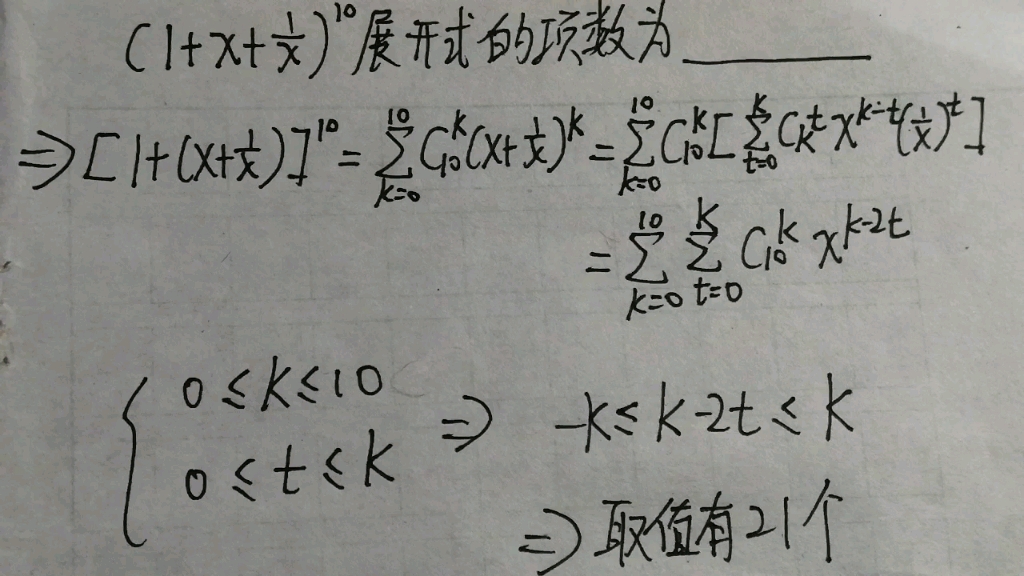 (1+x+1/x)^10 展开式的项数为______
⇒ [1+(x+1/x)]^10 = ∑_{k=0}^{10} C_{10}^k (x+1/x)^k = ∑_{k=0}^{10} C_{10}^k [∑_{t=0}^{k} C_k^t x^{k-t} (1/x)^t]
= ∑_{k=0}^{10} ∑_{t=0}^{k} C_{10}^k x^{k-2t}
{ 0≤k≤10
0≤t≤k
⇒ -k≤k-2t≤k
⇒ 取值有21个